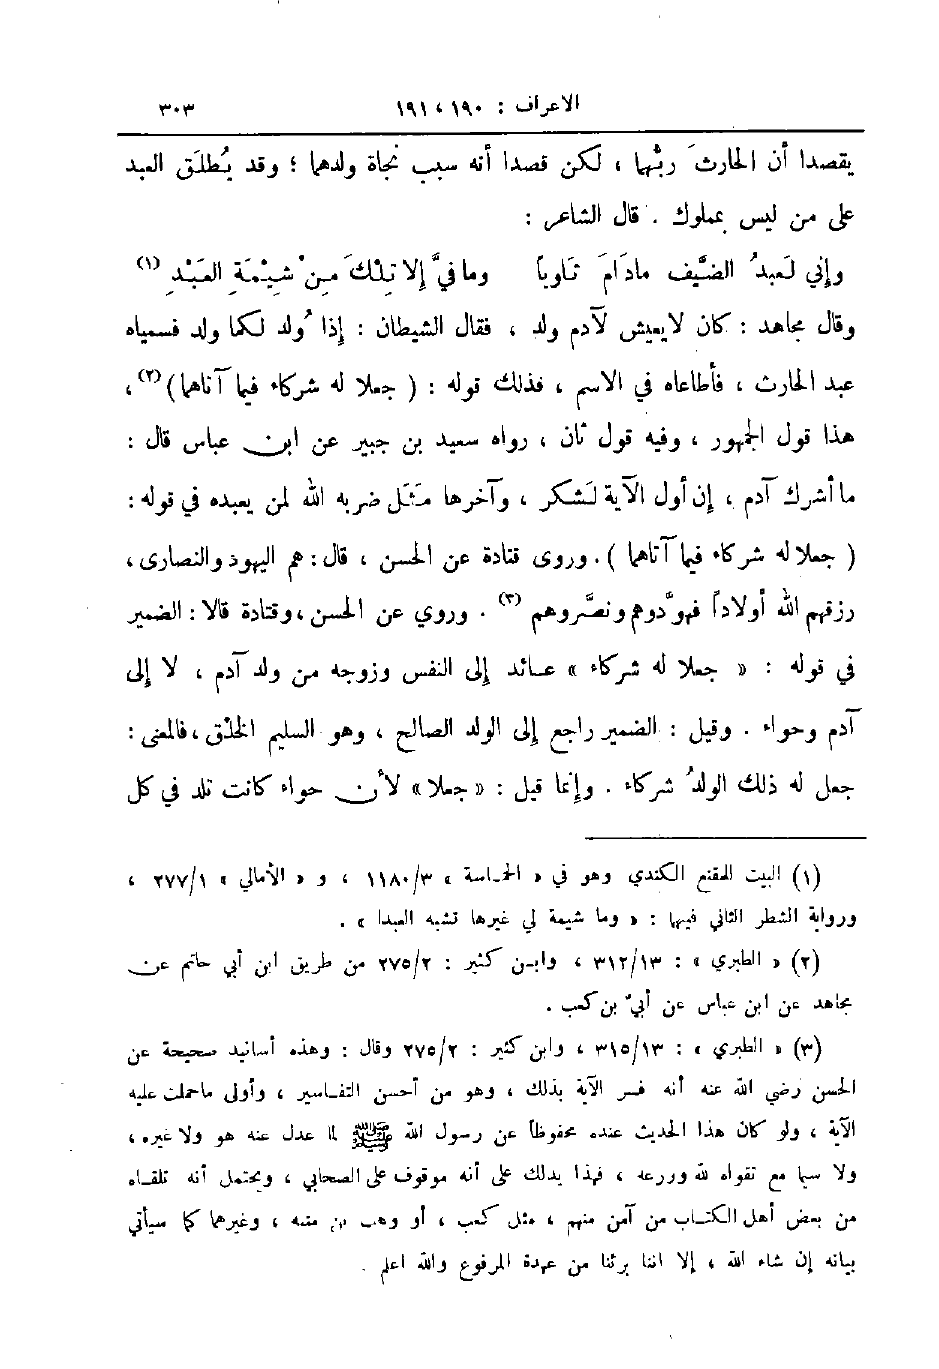 الاعراف : ١٩٠ ، ١٩١ ٣٠٣
يقصدا أن الحارثَ ربُّها ، لكن قصدا أنه سبب نجاة ولدهما ؛ وقد يُطلَق العبد
على من ليس بمملوك . قال الشاعر :
وإني لَعبدُ الضَّيف مادَامَ ثاوياً وما فيَّ إلا تِلْكَ مِنْ شِيْمَةِ العَبْدِ (١)
وقال مجاهد : كان لايعيش لآدم ولد ، فقال الشيطان : إذا وُلد لكما ولد فسمياه
عبد الحارث ، فأطاعاه في الاسم ، فذلك قوله : ( جعلا له شركاء فيما آتاهما ) (٢) ،
هذا قول الجمهور ، وفيه قول ثان ، رواه سعيد بن جبير عن ابن عباس قال :
ما أشرك آدم ، إن أول الآية لَشكر ، وآخرها مَثَل ضربه الله لمن يعبده في قوله :
( جعلا له شركاء فيما آتاهما ) . وروى قتادة عن الحسن ، قال : هم اليهود والنصارى ،
رزقهم الله أولاداً فهوَّدوهم ونصَّروهم (٣) . وروي عن الحسن ، وقتادة قالا : الضمير
في قوله : « جعلا له شركاء » عائد إلى النفس وزوجه من ولد آدم ، لا إلى
آدم وحواء . وقيل : الضمير راجع إلى الولد الصالح ، وهو السليم الخلْق ، فالمعنى :
جعل له ذلك الولدُ شركاء . وإنما قيل : « جعلا » لأن حواء كانت تلد في كل
(١) البيت للمقنع الكندي وهو في « الحماسة » ١١٨٠/٣ ، و « الأمالي » ٢٧٧/١ ،
ورواية الشطر الثاني فيها : « وما شيمة لي غيرها تشبه العبدا » .
(٢) « الطبري » : ٣١٢/١٣ ، وابن كثير : ٢٧٥/٢ من طريق ابن أبي حاتم عن
مجاهد عن ابن عباس عن أبيّ بن كعب .
(٣) « الطبري » : ٣١٥/١٣ ، وابن كثير : ٢٧٥/٢ وقال : وهذه أسانيد صحيحة عن
الحسن رضي الله عنه أنه فسر الآية بذلك ، وهو من أحسن التفاسير ، وأولى ماحملت عليه
الآية ، ولو كان هذا الحديث عنده محفوظاً عن رسول الله ﷺ لما عدل عنه هو ولا غيره ،
ولا سيما مع تقواه لله وورعه ، فهذا يدلك على أنه موقوف على الصحابي ، ويحتمل أنه تلقاه
من بعض أهل الكتاب من آمن منهم ، مثل كعب ، أو وهب بن منبه ، وغيرهما كما سيأتي
بيانه إن شاء الله ، إلا اننا برئنا من عهدة المرفوع والله اعلم .